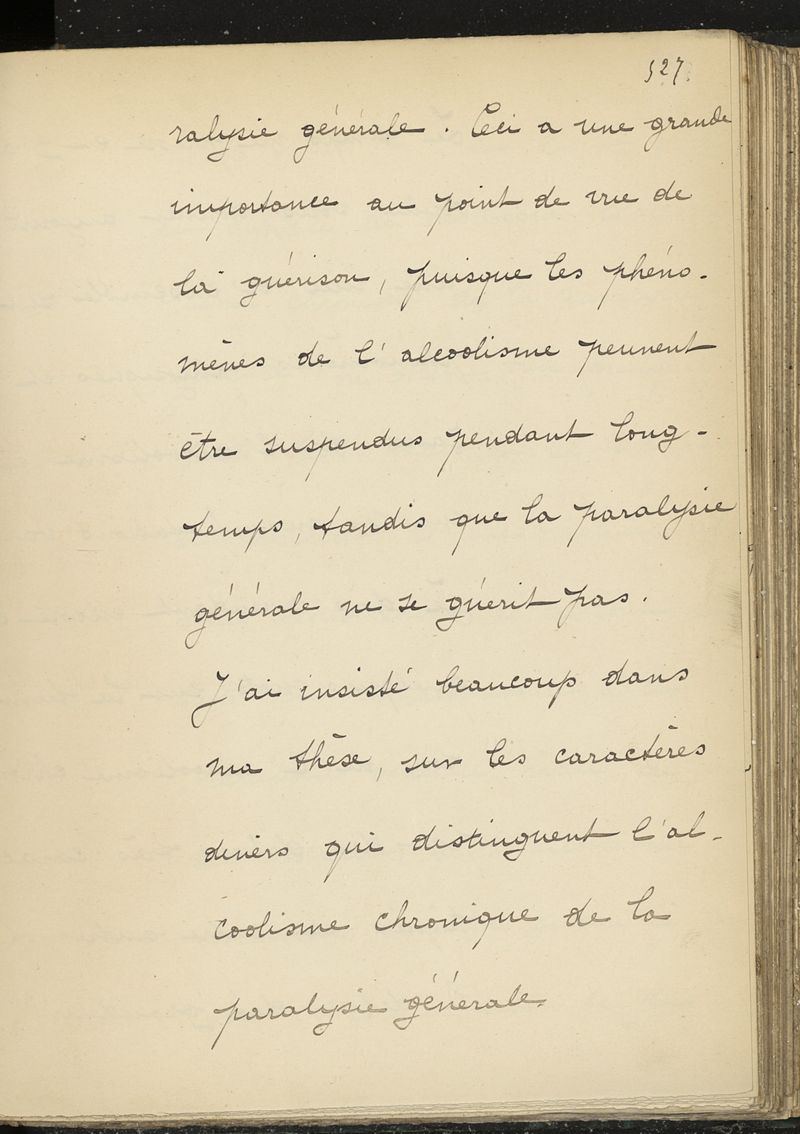 527.
ralysie générale. Ceci a une grande
importance au point de vue de
la guérison, puisque les phéno-
mènes de l'alcoolisme peuvent
être suspendus pendant long-
temps, tandis que la paralysie
générale ne se guérit pas.
J'ai insisté beaucoup dans
ma thèse, sur les caractères
divers qui distinguent l'al-
coolisme chronique de la
paralysie générale.